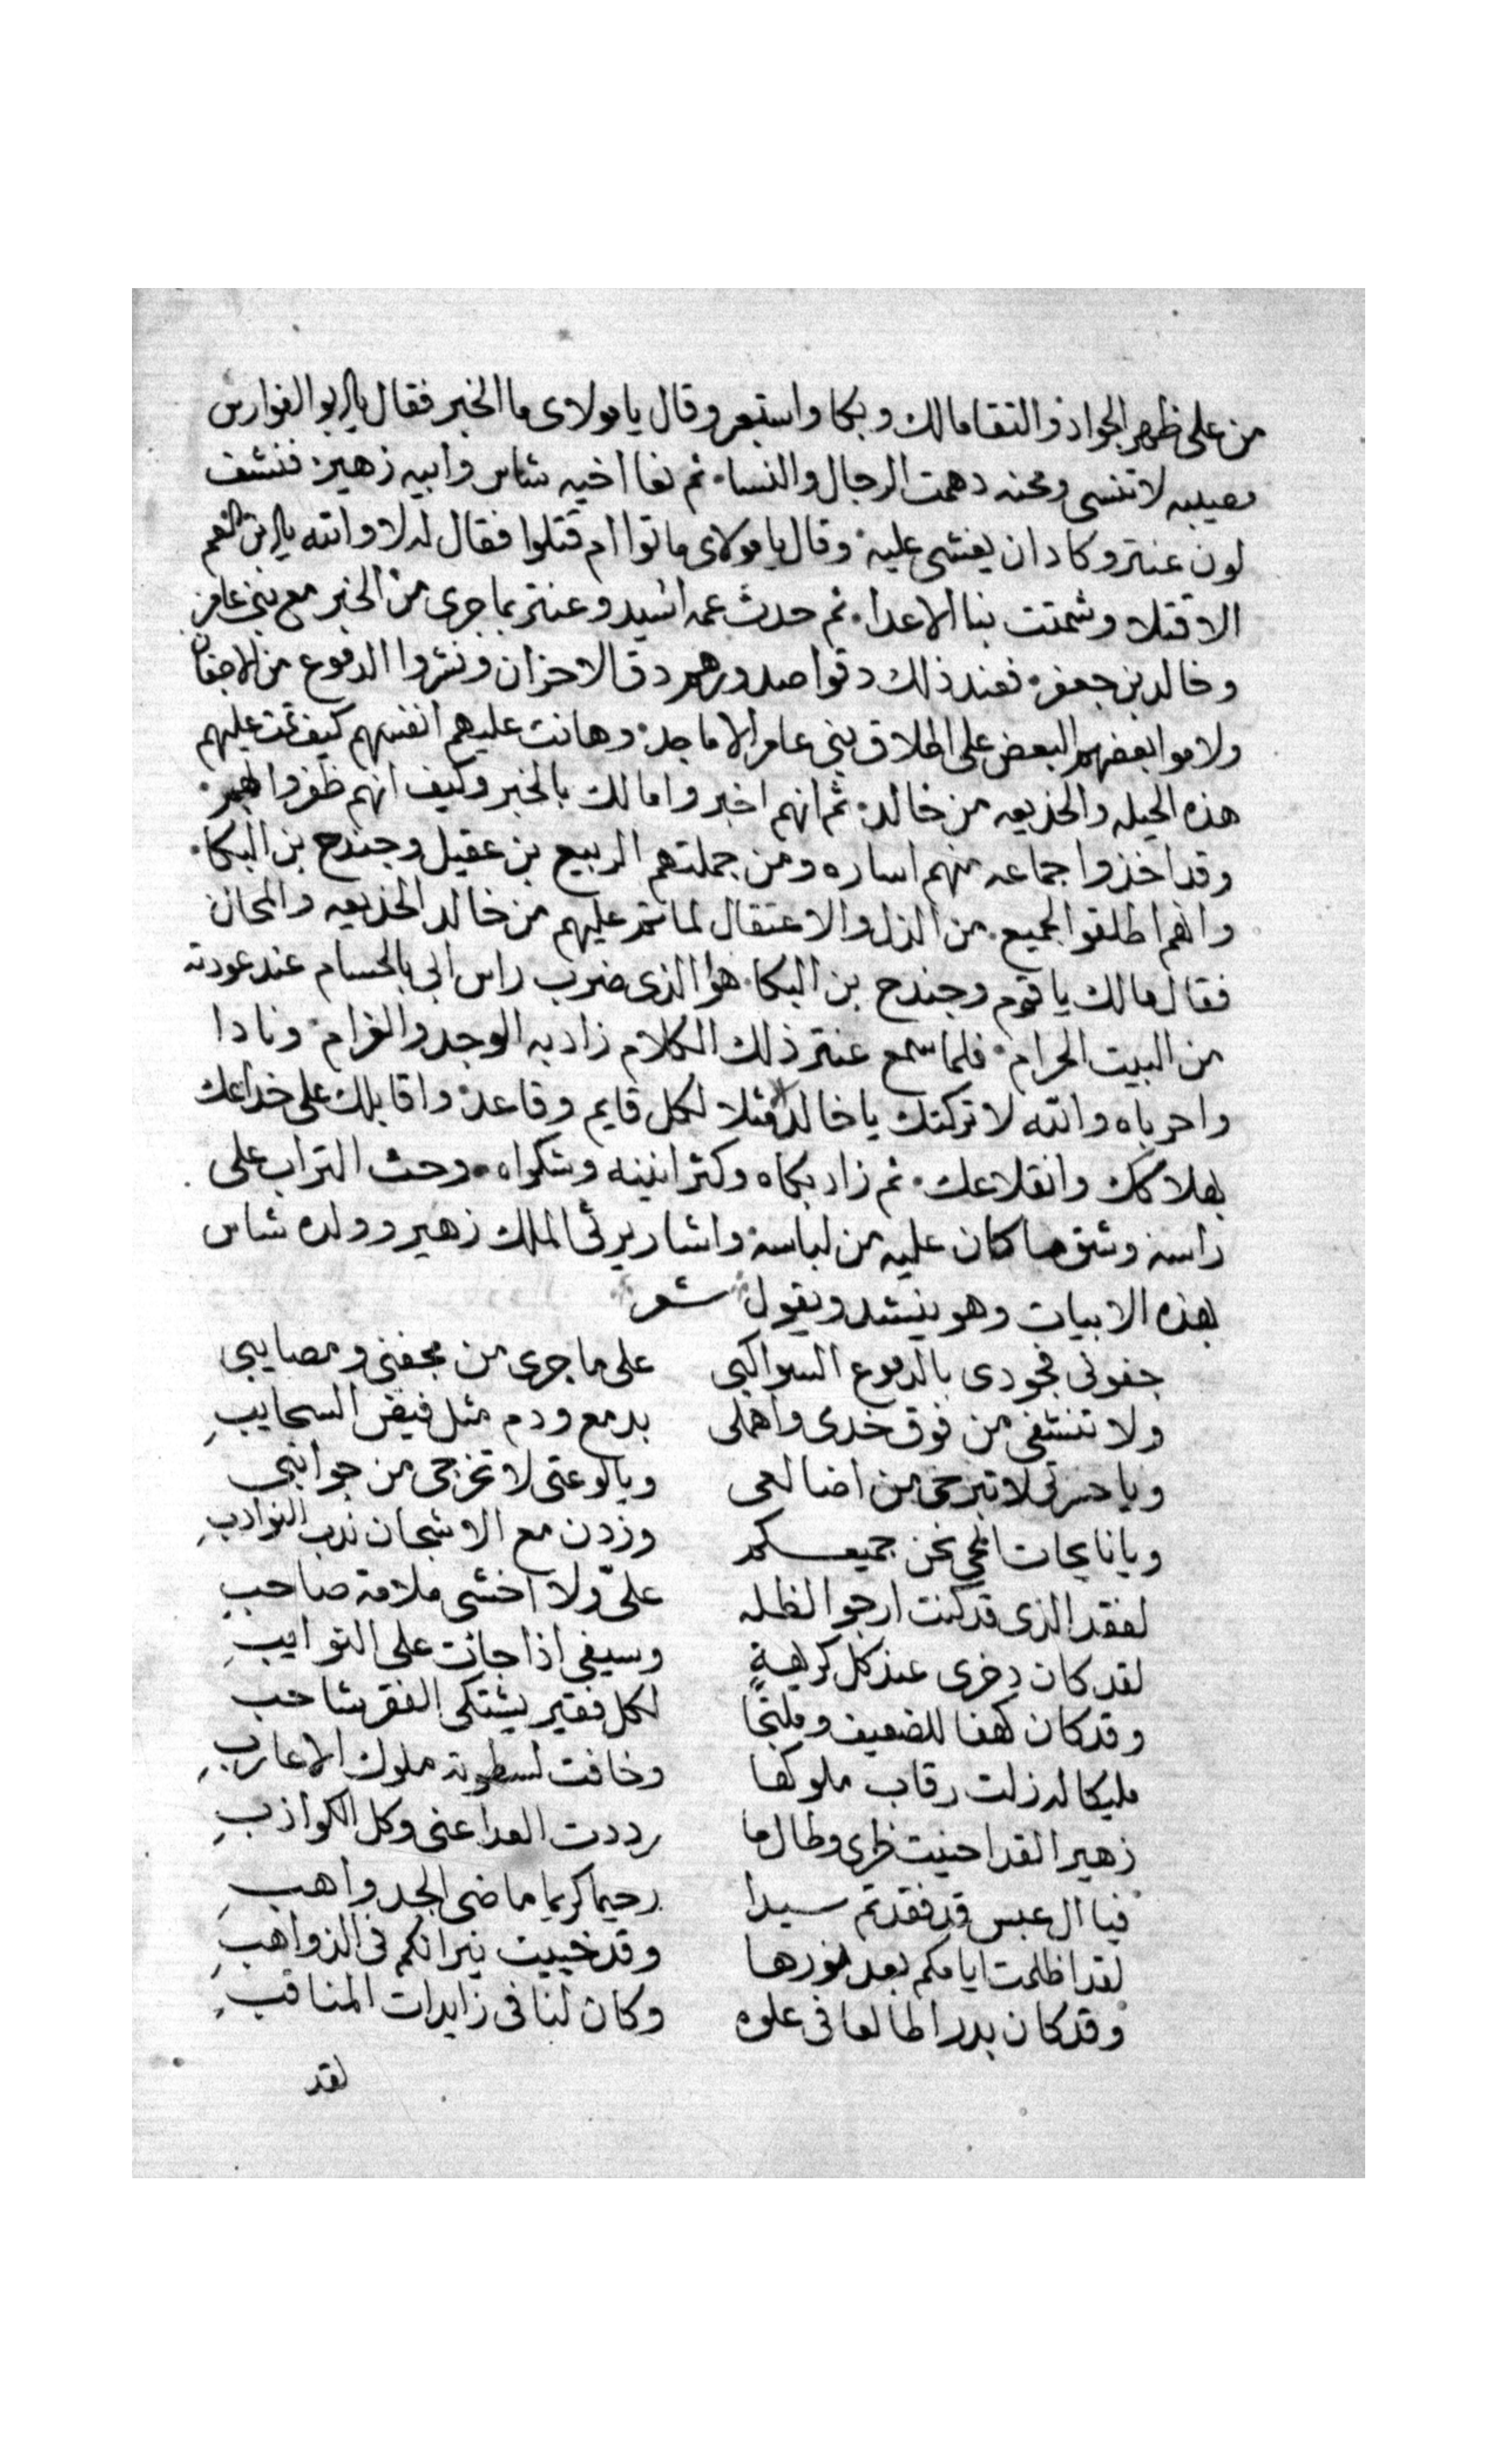 من على ظهر الجواد والتقا مالك وبكا واستعبر وقال يا مولاى ما الخبر فقال يا ابو الفوارس
مصيبه لا تنسى ومحنه دهمت الرجال والنسا۰ ثم نعا اخيه شاس وابيه زهير۰ فنشف
لون عنتر وكاد ان يغشى عليه۰ وقال يا مولاى ماتوا ام قتلوا فقال له لا والله يا ابن العم
الا قتلا وشمتت بنا الاعدا۰ ثم حدث عمه اسيد وعنتر بما جرى من الخبر مع بنى عامر
وخالد بن جعفر۰ فعند ذلك دقوا صدورهم دق الاحزان ونثروا الدموع من الاجفان
ولاموا بعضهم البعض على اطلاق بنى عامر الاماجد۰ وهانت عليهم انفسهم كيف تمت عليهم
هذه الحيله والخديعه من خالد۰ ثم انهم اخبروا مالك بالخبر وكيف انهم ظفروا بهم۰
وقد اخذوا جماعه منهم اساره ومن جملتهم الربيع بن عقيل وجندح بن البكا۰
وانهم اطلقوا الجميع۰ من الذل والاعتقال لما تم عليهم من خالد الخديعه والمحان
فقال مالك يا قوم وجندح بن البكا۰ هو الذى ضرب راس ابى بالحسام عند عودته
من البيت الحرام۰ فلما سمع عنتر ذلك الكلام زاد به الوجد والغرام۰ ونادا
واحرباه والله لا تركتك يا خالد مثلا لكل قايم وقاعد۰ واقابلك على خداعك
بهلاكك وانقلاعك۰ ثم زاد بكاه وكثر انينه وشكواه۰ وحث التراب على
راسه وشق ما كان عليه من لباسه۰ واشار يرثى الملك زهير وولده شاس
بهذه الابيات وهو ينشد ويقول شعر
جفونى فجودى بالدموع السواكبى على ما جرى من محنتى ومصايبى
ولا تنشفى من فوق خدى واهملى بدمع ودم مثل فيض السحايبِ
ويا حسرتى لا تبرحى من اضالعى ويا لوعتى لا تخرجى من جوانبى
ويا نايحات الحى نحن جميعكم وزدن مع الاشجان ندب النوادبِ
لفقد الذى قد كنت ارجو الظله علىّ ولا اخشى ملامة صاحبِ
لقد كان دخرى عند كل كريهةٍ وسيفى اذا جارت على النوايبِ
وقد كان كهفا للضعيف وملتجًا لكل فقير يشتكى الفقر شاحب
مليكا له زلت رقاب ملوكها وخافت لسطوته ملوك الاعاربِ
زهيرا لقد احنيت ظهرى وطال ما رددت العدا عنى وكل الكواذبِ
فيا ال عبس قد فقدتم سيدا رحيما كريما ماضى الجد واهبِ
لقد اظلمت ايامكم بعد نورها وقد خبيت نيرانكم فى الذواهبِ
وقد كان بدرا طالعا فى علوه وكان لنا فى زايدات المناقبِ
لقد